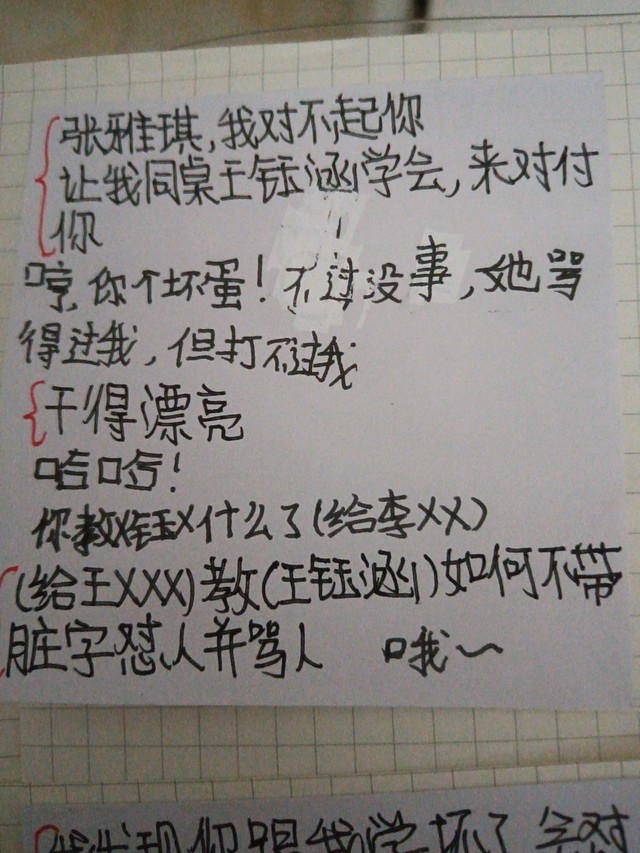 张雅琪,我对不起你
让我同桌王钰涵学会,来对付
你
哼,你个坏蛋!不过没事,她骂
得过我,但打不过我
干得漂亮
哈哈!
你教X钰X什么了(给李XX)
(给王XXX)教(王钰涵)如何不带
脏字怼人并骂人 哦~
我发现你跟我学坏了